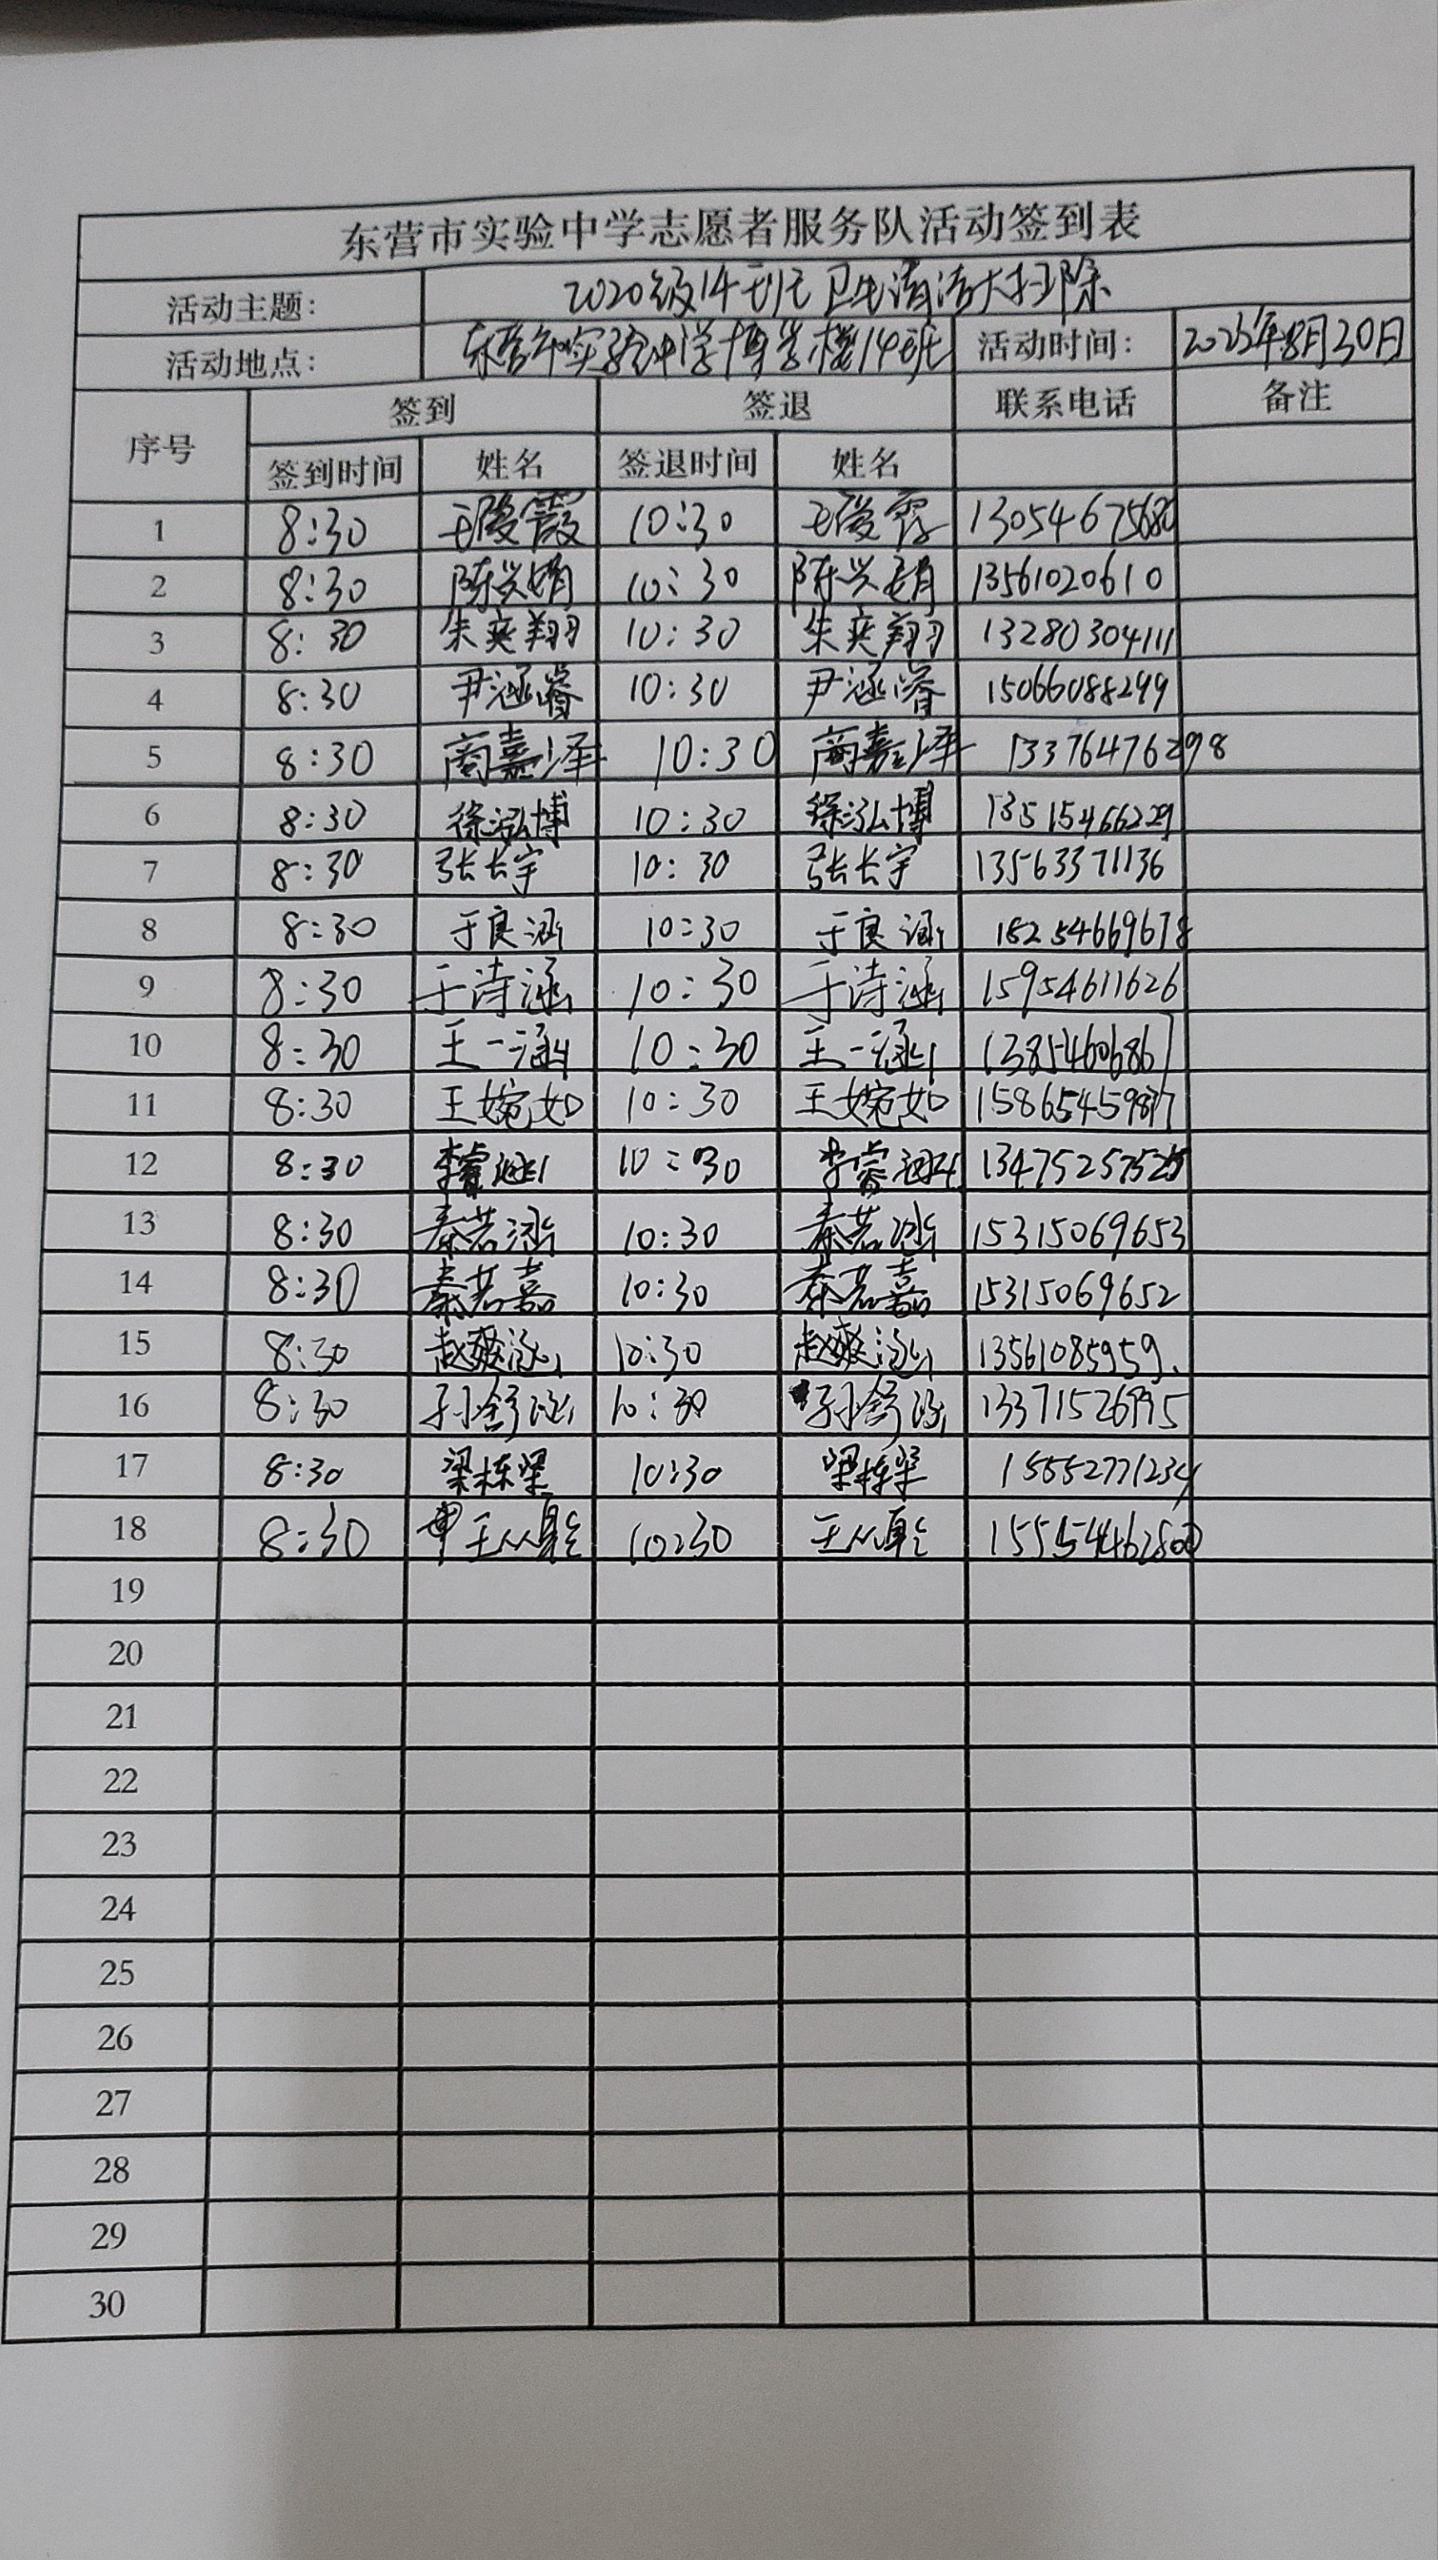 东营市实验中学志愿者服务队活动签到表
活动主题: 2020级14班 卫生清洁大扫除
活动地点: 东营市实验中学博学楼14班 活动时间: 2023年8月30日
序号 签到 签退 联系电话 备注
签到时间 姓名 签退时间 姓名
1 8:30 10:30
2 8:30 陈兴娟 10:30 陈兴娟 13561020610
3 8:30 朱奕翔 10:30 朱奕翔 13280304111
4 8:30 尹涵睿 10:30 尹涵睿 15066088299
5 8:30 商嘉泽 10:30 商嘉泽 13376476298
6 8:30 徐泓博 10:30 徐泓博 13515466229
7 8:30 张长宇 10:30 张长宇 13563371136
8 8:30 于良涵 10:30 于良涵
9 8:30 于诗涵 10:30 于诗涵 15954611626
10 8:30 王一涵 10:30 王一涵
11 8:30 王婉如 10:30 王婉如
12 8:30 李睿涵 10:30 李睿涵
13 8:30 秦若涵 10:30 秦若涵 15315069653
14 8:30 秦若嘉 10:30 秦若嘉 15315069652
15 8:30 赵爽涵 10:30 赵爽涵 13561085959
16 8:30 孙舒涵 10:30 孙舒涵 13371526995
17 8:30 10:30 15552771234
18 8:30 10:30
19
20
21
22
23
24
25
26
27
28
29
30